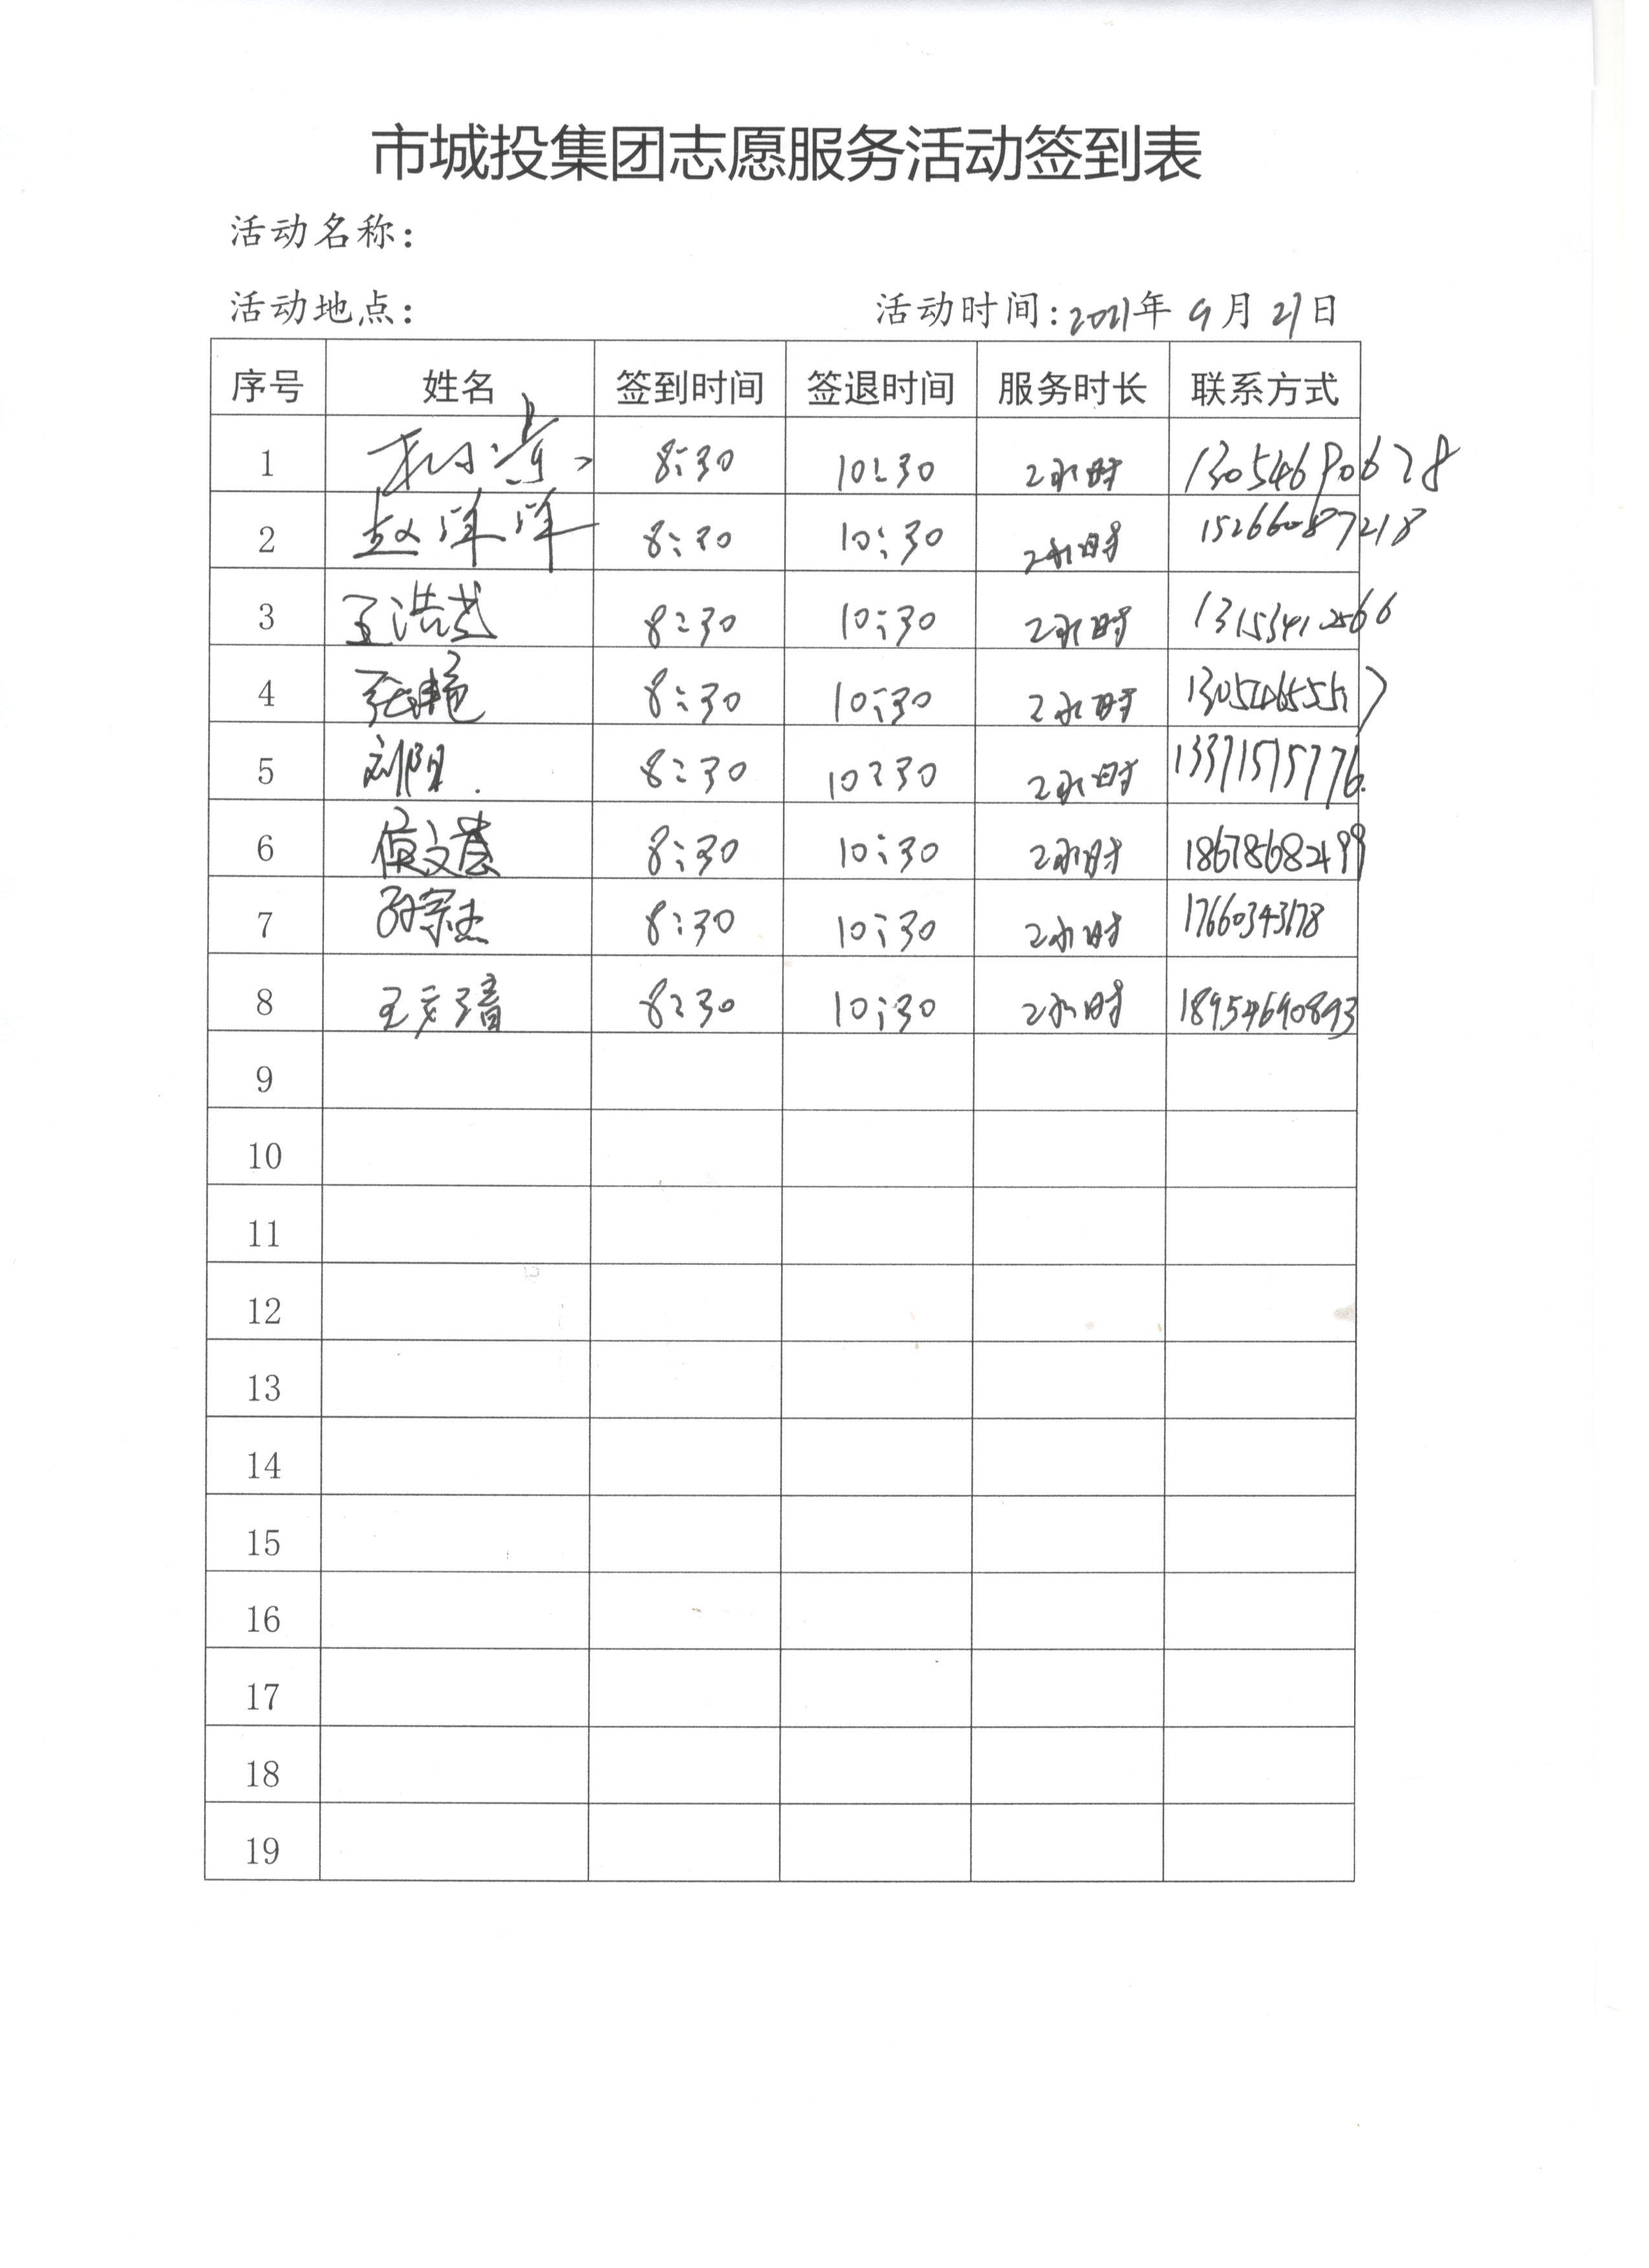 市城投集团志愿服务活动签到表
活动名称：
活动地点： 活动时间：2021年 9月 21日
序号 姓名 签到时间 签退时间 服务时长 联系方式
1 8:30 10:30 2小时
2 赵洋洋 8:30 10:30 2小时 15266087218
3 王浩武 8:30 10:30 2小时
4 张艳 8:30 10:30 2小时
5 刘阳. 8:30 10:30 2小时 13371515776.
6 8:30 10:30 2小时 18678682499
7 孙宗杰 8:30 10:30 2小时 17660343178
8 8:30 10:30 2小时 18954690893
9
10
11
12
13
14
15
16
17
18
19